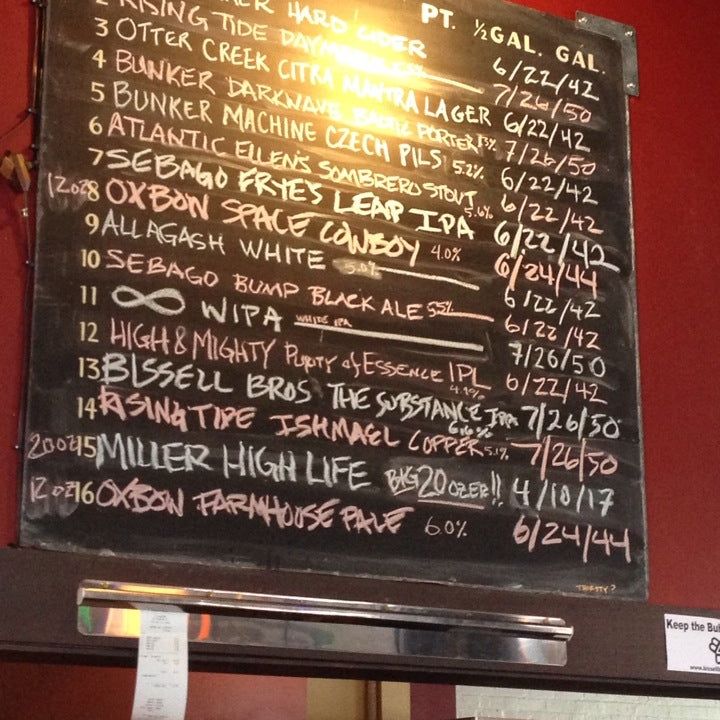 HARD CIDER
PT. ½GAL. GAL.
2 RISING TIDE 6/22/42
3 OTTER CREEK CITRA MANTRA LAGER 7/26/50
4 BUNKER DARKWAVE BALTIC PORTER 6/22/42
5 BUNKER MACHINE CZECH PILS 5.2% 7/26/50
6 ATLANTIC ELLEN'S SOMBRERO STOUT 6/22/42
7 SEBAGO FRYE'S LEAP IPA 5.6% 6/22/42
12oz 8 OXBOW SPACE COWBOY 4.0% 6/22/42
9 ALLAGASH WHITE 5.0% 6/24/44
10 SEBAGO BUMP BLACK ALE 5.5% 6/22/42
11 ∞ WIPA WHITE IPA 6/22/42
12 HIGH & MIGHTY PURITY of ESSENCE IPL 7/26/50
13 BISSELL BROS THE SUBSTANCE IPA 6.6% 6/22/42
14 RISING TIDE ISHMAEL COPPER 5.1% 7/26/50
7/26/50
20oz 15 MILLER HIGH LIFE BIG 20 OZER!! 4/10/17
12oz 16 OXBOW FARMHOUSE PALE 6.0% 6/24/44
THIRSTY?
Keep the